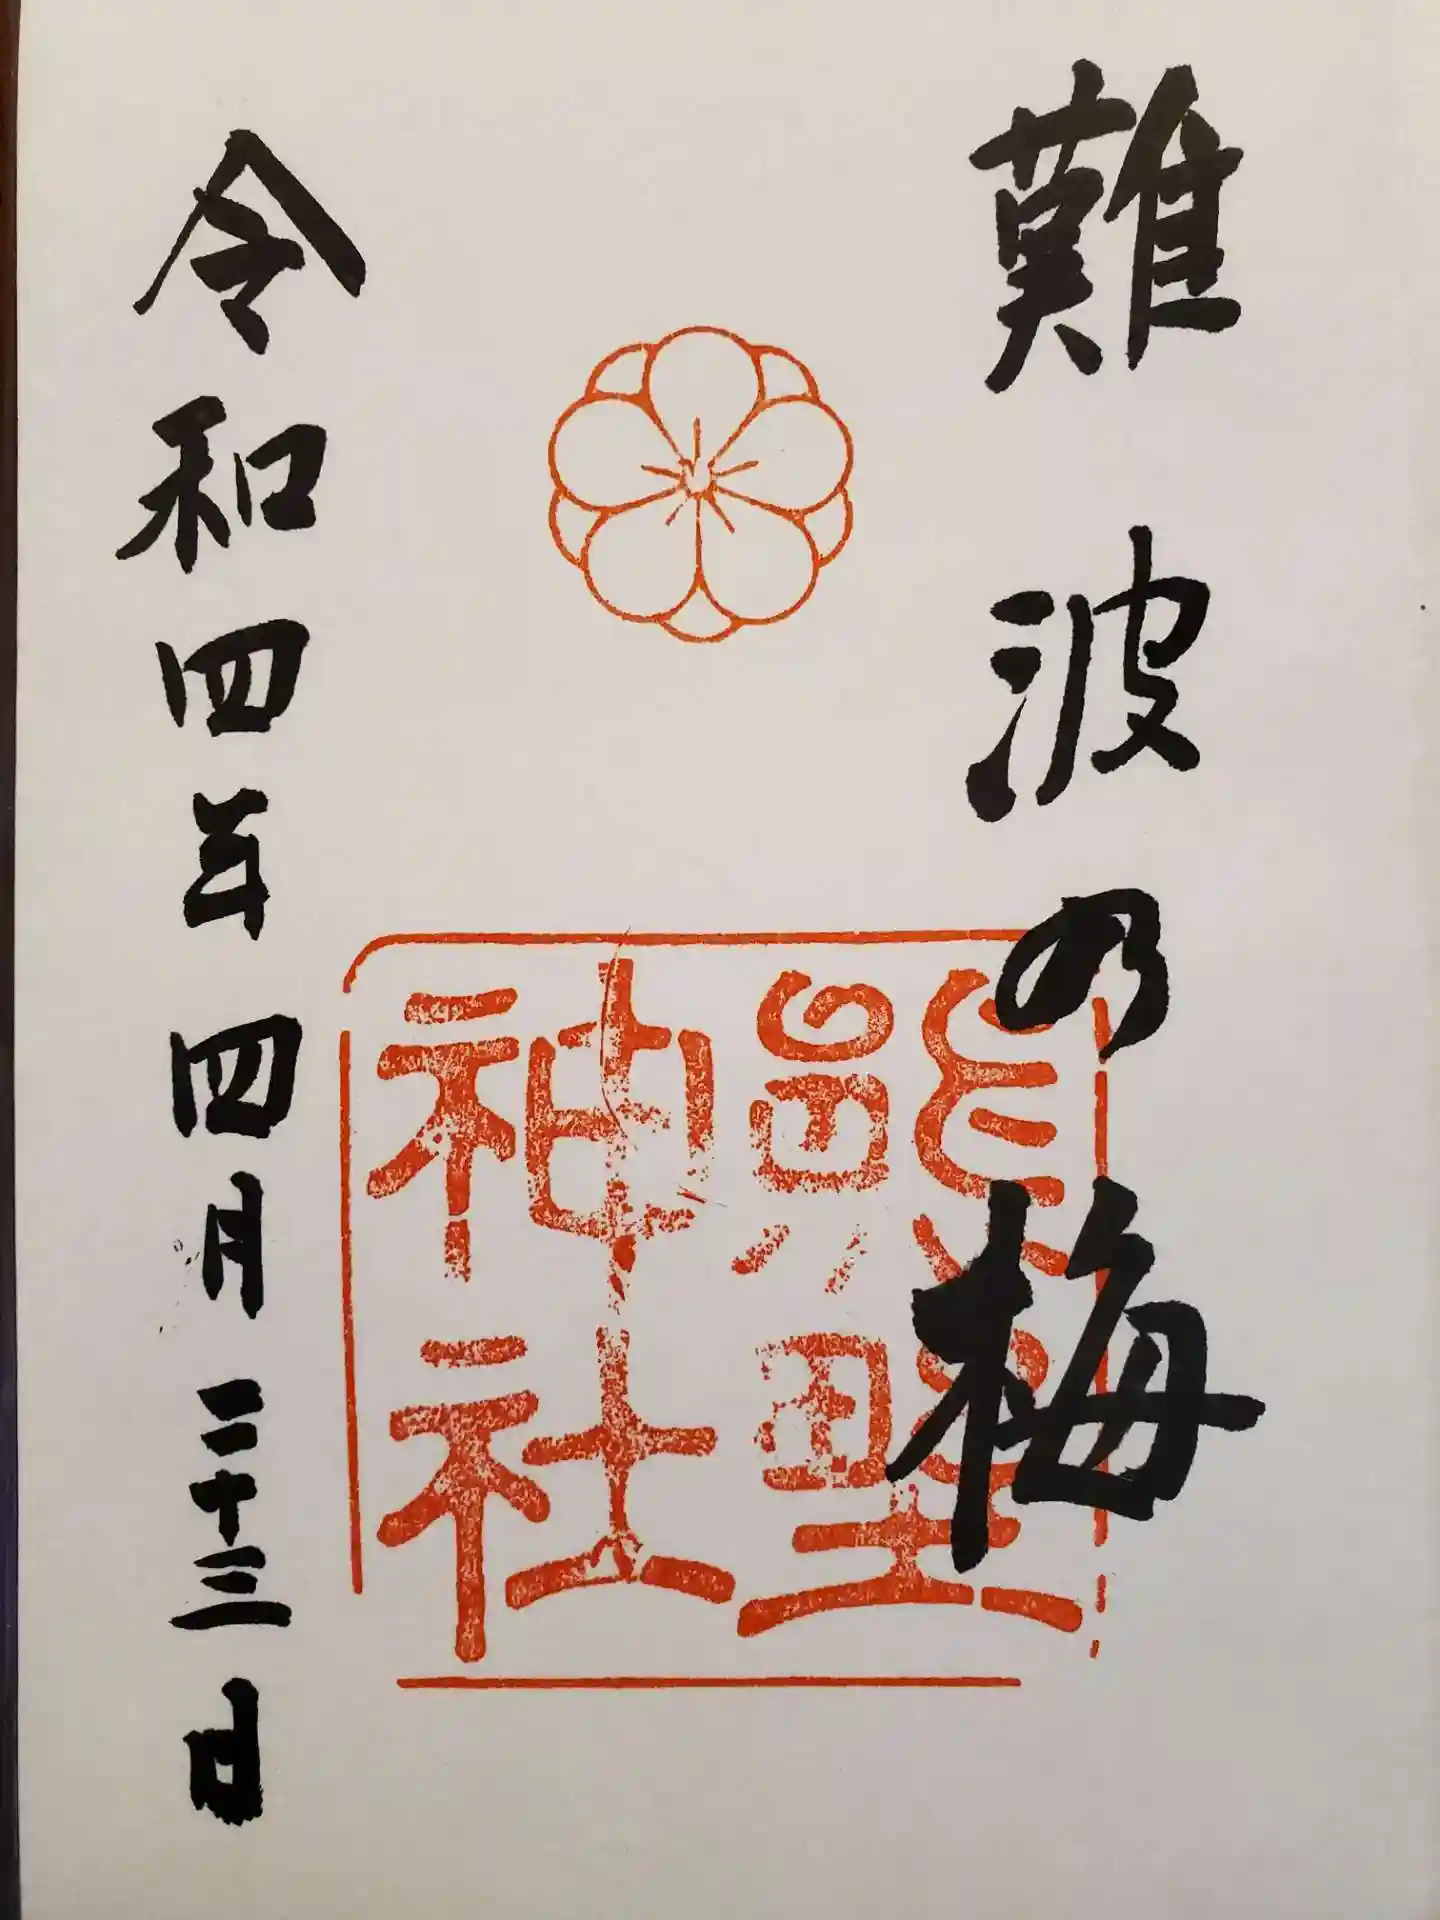 難波の梅
熊野神社
令和四年四月二十三日